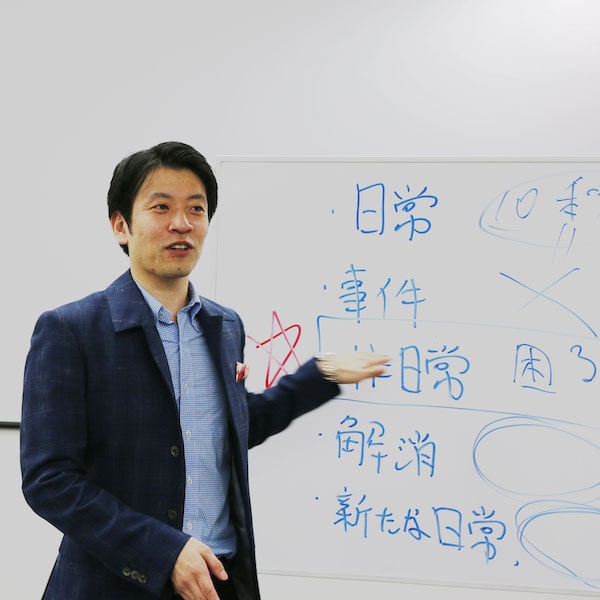 ・日常 10秒
・事件
非日常 困る
・解消
・新たな日常.